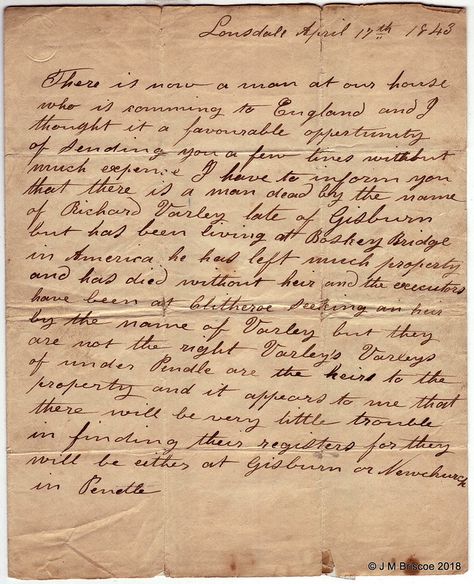 Lonsdale April 17th 1843
There is now a man at our house
who is comming to England and I
thought it a favourable opportunity
of sending you a few lines without
much expence I have to inform you
that there is a man dead by the name
of Richard Varley late of Gisburn
but has been living at Boskey Bridge
in America he has left much property
and has died without heir and the executors
have been at Clitheroe seeking an heir
by the name of Varley but they
are not the right Varley's Varleys
of under Pendle are the heirs to the
property and it appears to me that
there will be very little trouble
in finding their registers for they
will be either at Gisburn or Newchurch
in Pendle
© J M Briscoe 2018